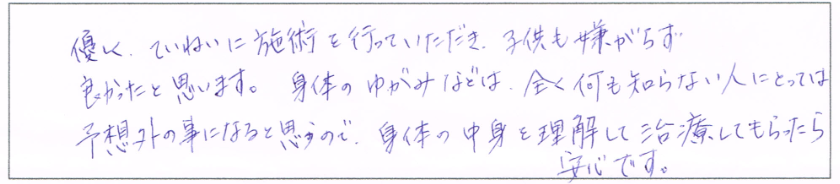 優しく、ていねいに施術を行っていただき、子供も嫌がらず
良かったと思います。 身体のゆがみなどは、全く何も知らない人にとっては
予想外の事になると思うので、身体の中身を理解して治療してもらったら
安心です。